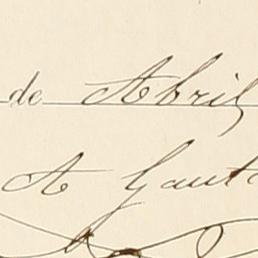 de Abril
A Gaut